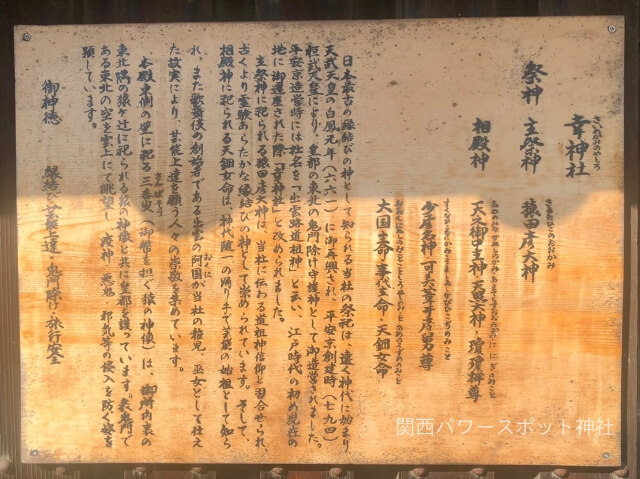 さいのかみのやしろ
幸神社
祭神 主祭神 猿田彦大神
さるたひこのおおかみ
相殿神 天之御中主神・天照大神・瓊瓊杵尊
少彦名神・可美葦牙彦舅尊
大国主命・事代主命・天鈿女命
日本最古の縁結びの神として知られる当社の祭祀は、遠く神代に始まり
天武天皇の白鳳元年(六六一)に御再興され、平安京創建時(七九四)
桓武天皇により、皇都の東北の鬼門除け守護神として御造営されました。
平安京造営時には社名を「出雲路道祖神」と云い、江戸時代の初め現在の
地に御遷座された際「幸神社」と改められました。
主祭神に祀られる猿田彦大神は、当社に伝わる道祖神信仰と習合せられ、
古くより霊験あらたかな縁結びの神として崇められています。そして、
相殿神に祀られる天鈿女命は、神代随一の踊り手で芸能の始祖として知ら
れ、また歌舞伎の創始者である出雲の阿国が当社の稚児、巫女として仕え
おくに
た故実により、芸能上達を願う人々の崇敬を集めています。
さんばそう
本殿東側の
に祀る三番叟(御幣を担ぐ猿の神像)は、御所内裏の
東北隅の猿ヶ辻に祀られる猿の神像と共に皇都を護っています。表鬼門で
ある東北の空を雲上にて眺望し、疫神・悪鬼・邪気等の侵入を防ぐ姿を
顕しています。
御神徳 縁結び・芸能上達・鬼門除け・旅行安全
関西パワースポット神社